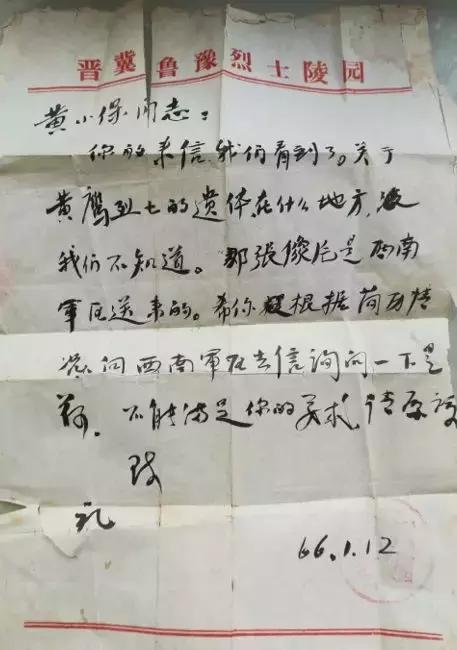 晋冀鲁豫烈士陵园
黄小保同志：
你的来信，我们看到了。关于
黄鹰烈士的遗体在什么地方，
我们不知道。那張像片是西南
軍区送来的。希你根据
向西南軍区去信詢问一下是
荷，不能满足你的要求，请原谅
致
礼
66.1.12